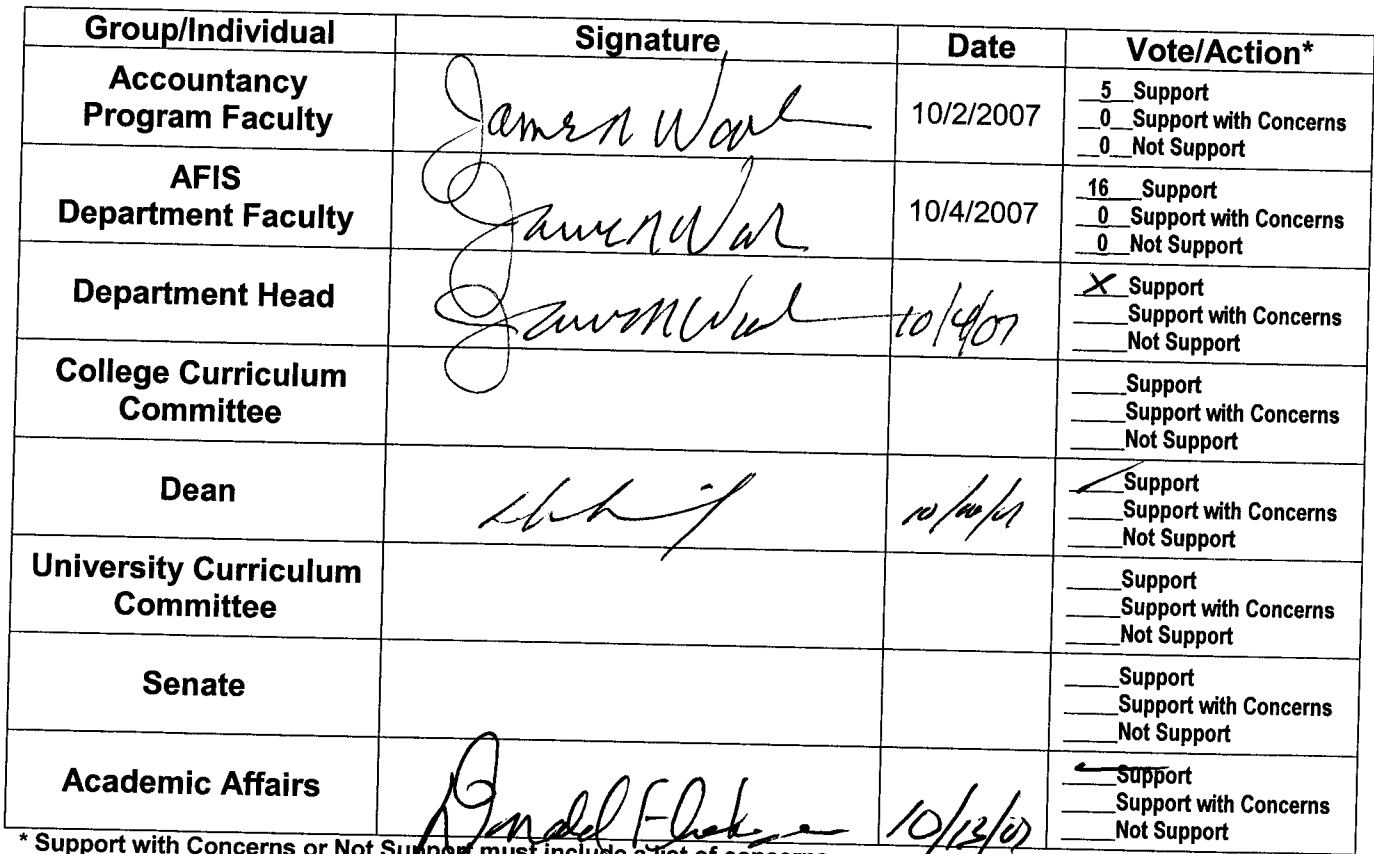 Group/Individual Signature Date Vote/Action*
Accountancy
Program Faculty
James N Wool
10/2/2007
5 Support
0 Support with Concerns
0 Not Support
AFIS
Department Faculty
10/4/2007
16 Support
0 Support with Concerns
0 Not Support
Department Head
10/4/07
X Support
Support with Concerns
Not Support
College Curriculum
Committee
Support
Support with Concerns
Not Support
Dean
Support
Support with Concerns
Not Support
University Curriculum
Committee
Support
Support with Concerns
Not Support
Senate
Support
Support with Concerns
Not Support
Academic Affairs
Donald
10/13/07
Support
Support with Concerns
Not Support
* Support with Concerns or Not Support must include a list of concerns